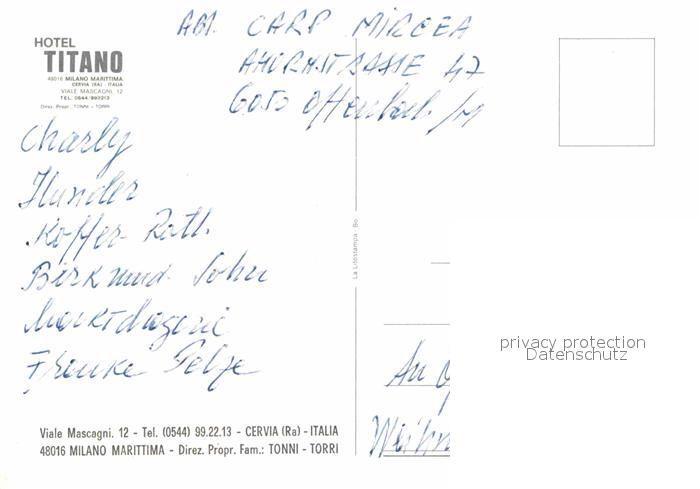 ABS. CARP MIRCEA
AHORNSTRASSE 47
6050 Offenbach /M
HOTEL
TITANO
48016 MILANO MARITTIMA
CERVIA (RA) - ITALIA
VIALE MASCAGNI, 12
TEL. 0544/992213
Direz. Propr.: TONNI - TORRI
Charly
Hunder
Koffer Roth
Birk und Sohn
Marktdrogerie
Franke Pelze
La Litostampa - Bo
privacy protection
Datenschutz
An
Weihn
Viale Mascagni, 12 - Tel. (0544) 99.22.13 - CERVIA (Ra) - ITALIA
48016 MILANO MARITTIMA - Direz. Propr. Fam.: TONNI - TORRI